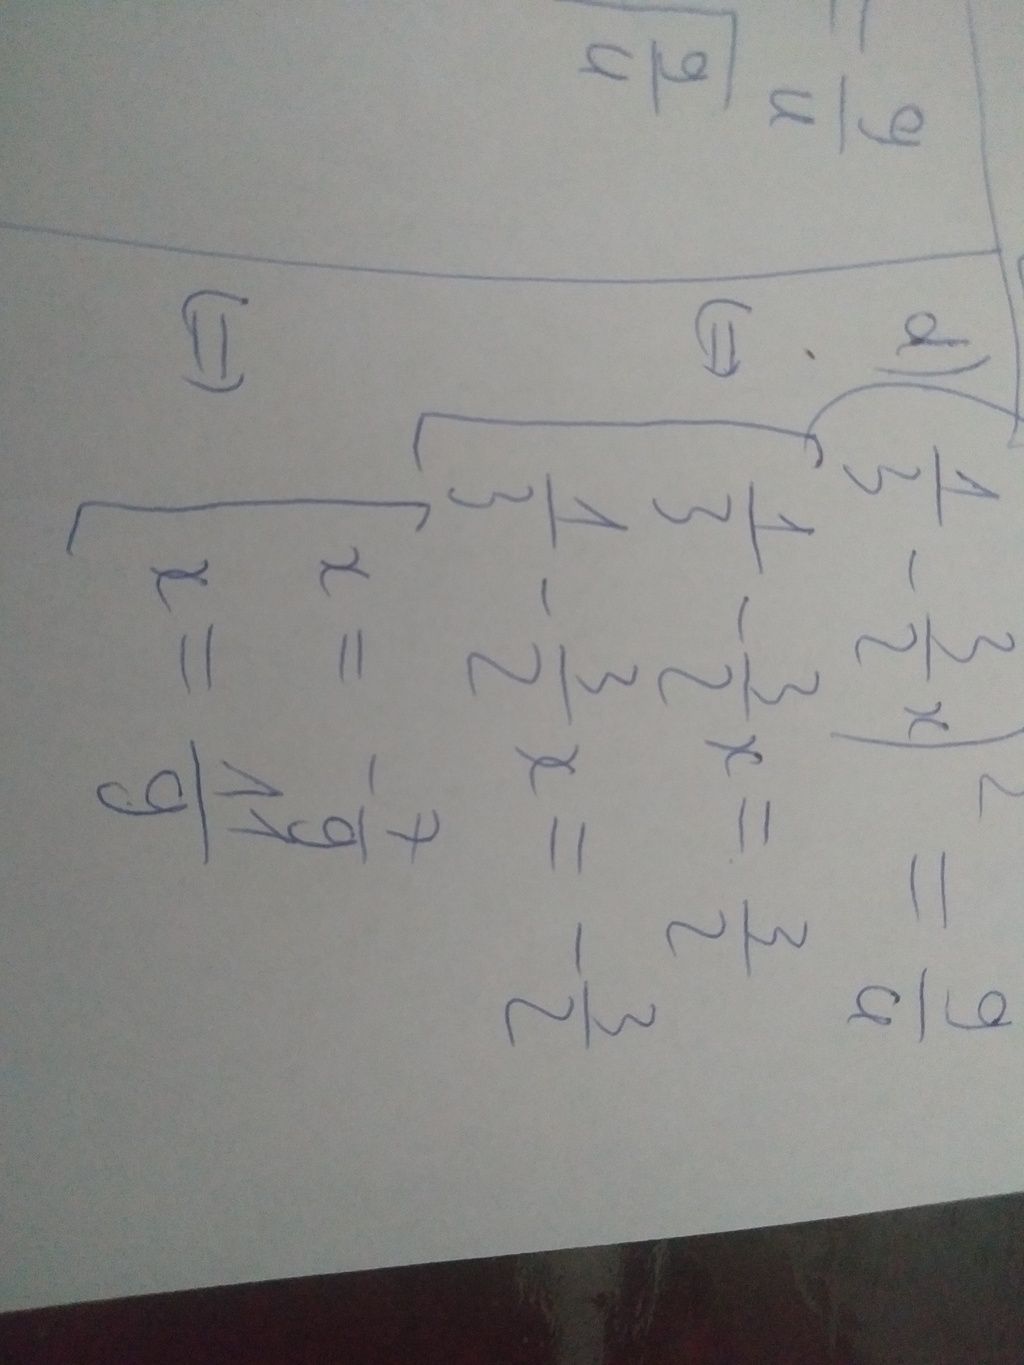 = 9/4
√ 9/4
d) (1/3 - 3/2 x)² = 9/4
(=) [ 1/3 - 3/2 x = 3/2
1/3 - 3/2 x = - 3/2
(=) [ x = - 7/9
x = 11/9